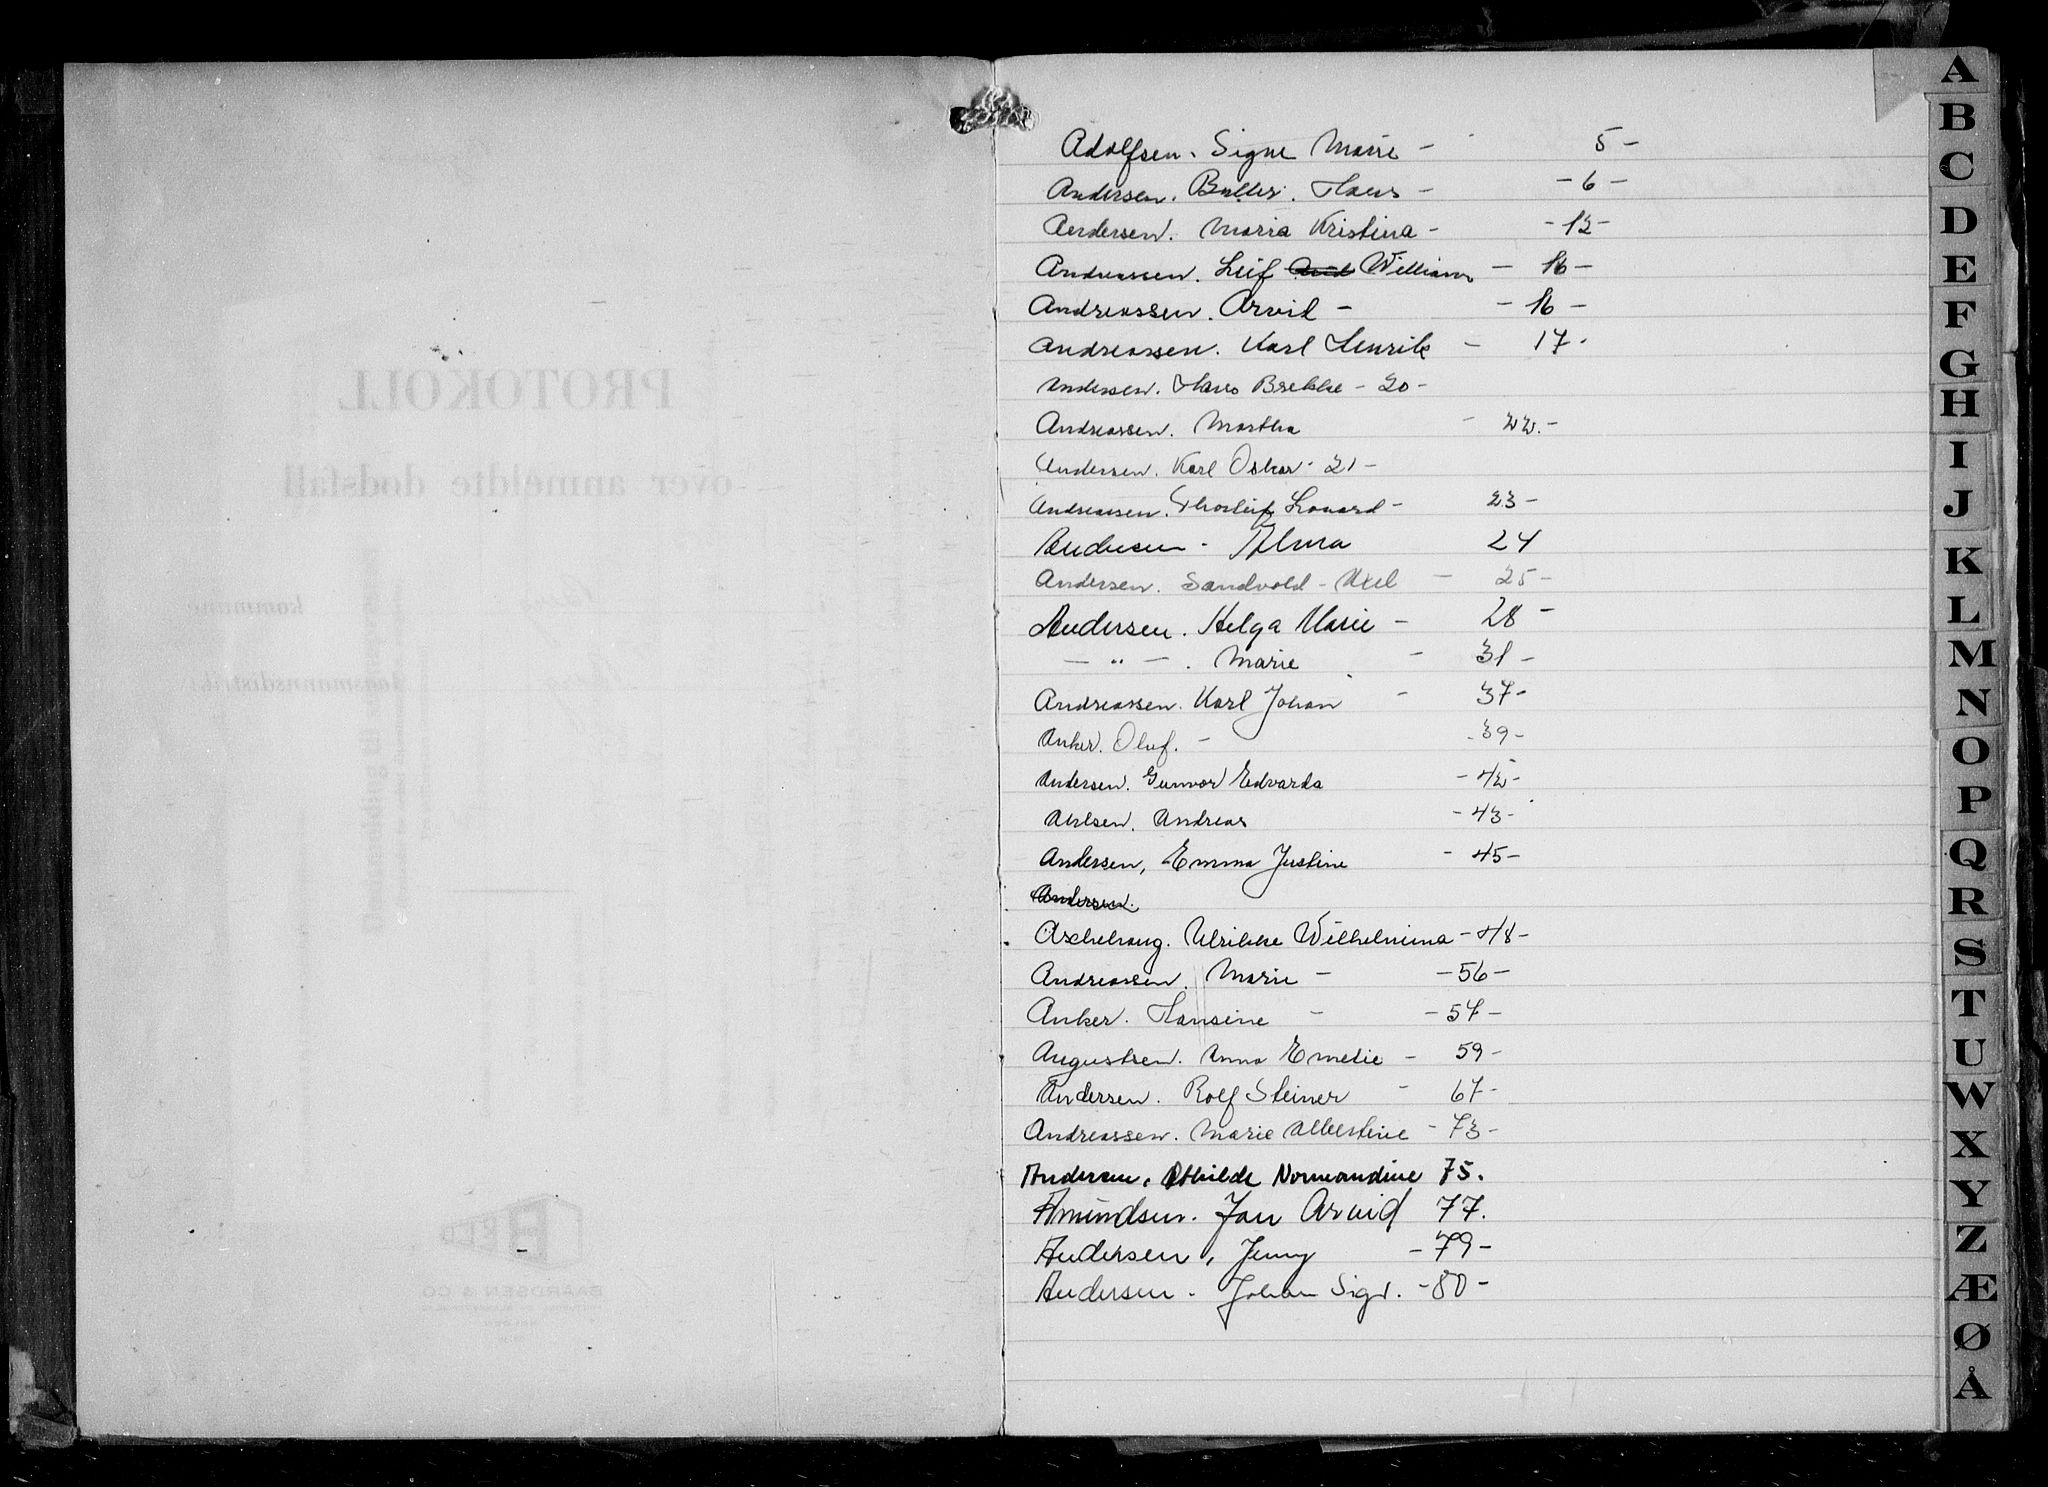 Adolfsen. Signe Marie - 5 -
Andersen. Hans - - 6 -
Andersen. Maria Kristina - - 12 -
Andreassen. Leif William - 16 -
Andreassen. Arvid - - 16 -
Andreassen. Karl Henrik - 17.
Andersen. Hans Brekke - 20 -
Andreassen. Martha - 22. -
Andersen. Karl Oskar - 21 -
Andreassen. Thorleif Leonard - 23 -
Andersen - Alma 24
Andersen. Sandvold - Axel - 25 -
Andersen. Helga Marie - 28 -
- " - . Marie - 31 -
Andreassen. Karl Johan - 37 -
Anker. Oluf. - - 39 -
Andersen. Gunvor Edvarda - 42 -
Ahlsen. Andreas - 43 -
Andersen, Emma Justine - 45 -
Andersen.
Aschehoug. Ulrikke Wilhelmina - 48 -
Andreassen. Marie - - 56 -
Anker. Hansine - - 57 -
Augustsen. Anna Emelie - 59 -
Andersen. Rolf Steiner - 67 -
Andreassen. Marie Albertine - 73 -
Andersen, Othilde Normandine 75.
Amundsen. Jan Arvid 77.
Andersen, Jenny - 79 -
Andersen - Johan Sigv. - 80 -
A
B
C
D
E
F
G
H
I
J
K
L
M
N
O
P
Q
R
S
T
U
W
X
Y
Z
Æ
Ø
Å
PROTOKOLL
over anmeldte dødsfall
kommune
BAARDSEN & CO